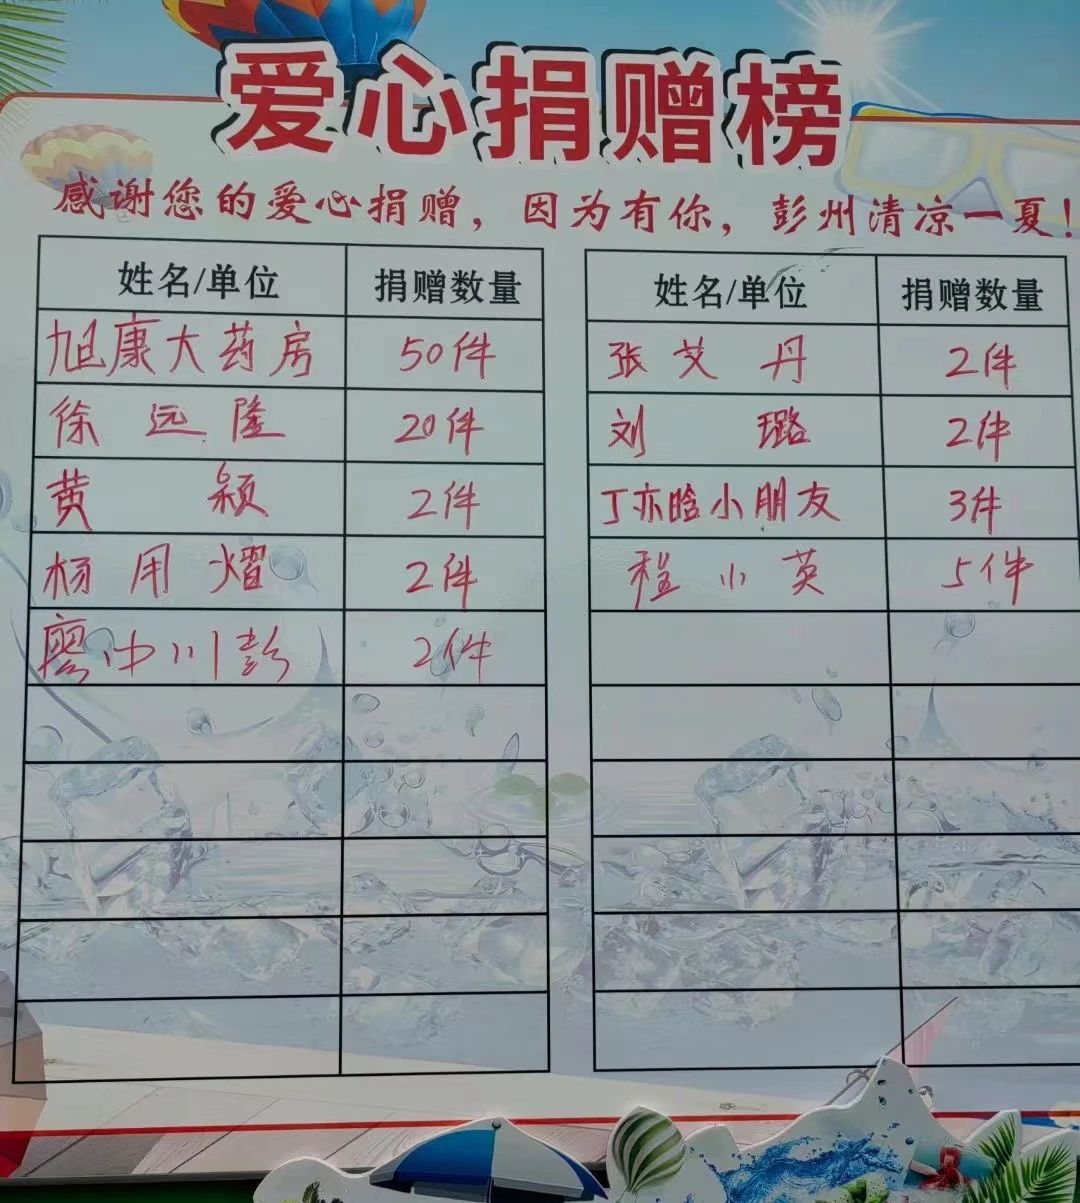 爱心捐赠榜
感谢您的爱心捐赠，因为有你，彭州清凉一夏！
姓名/单位 捐赠数量
旭康大药房 50件
徐远隆 20件
黄颖 2件
杨用熠 2件
廖中川彭 2件
姓名/单位 捐赠数量
张艾丹 2件
刘璐 2件
丁亦晗小朋友 3件
程小英 5件